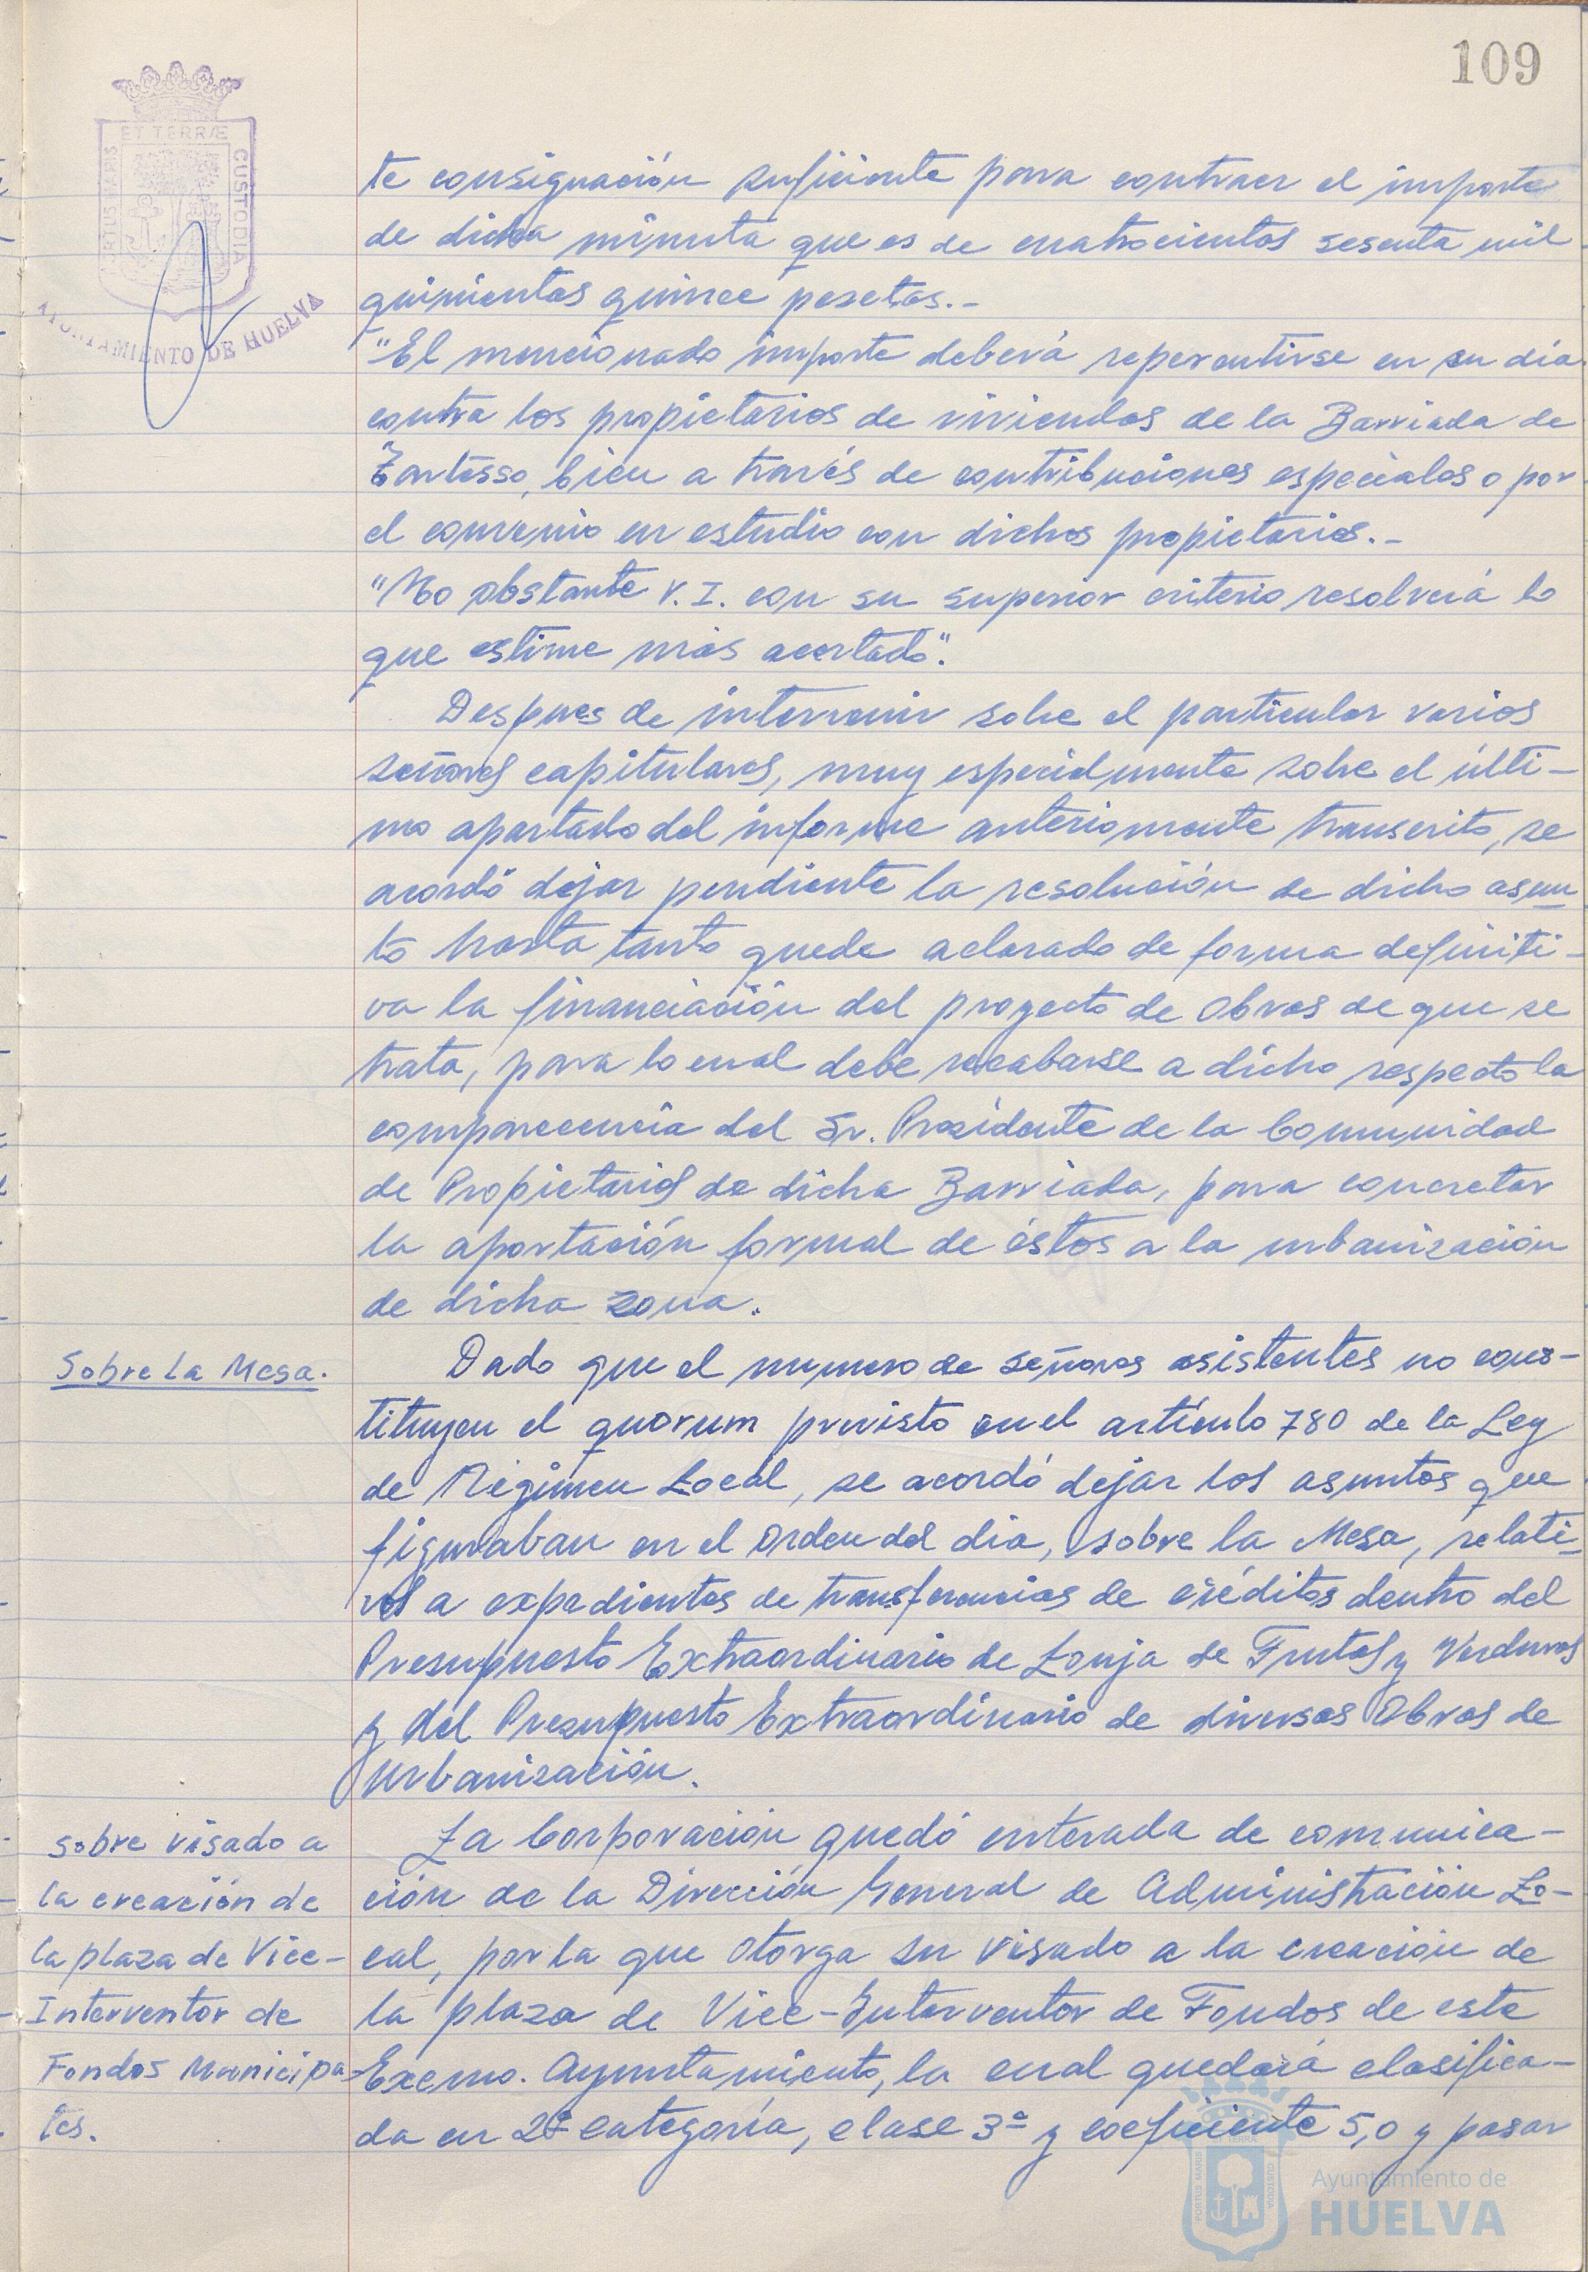 109
ET TERRÆ
PORTUS MARIS
CUSTODIA
AYUNTAMIENTO DE HUELVA
te consignación suficiente para contraer el importe
de dicha minuta que es de cuatrocientas sesenta mil
quinientas quince pesetas.-
"El mencionado importe deberá repercutirse en su día
contra los propietarios de viviendas de la Barriada de
Tartesso, bien a través de contribuciones especiales o por
el convenio en estudio con dichos propietarios.-
"No obstante V.I. con su superior criterio resolverá lo
que estime más acertado".
Despues de intervenir sobre el particular varios
señores capitulares, muy especialmente sobre el últi-
mo apartado del informe anteriormente transcrito, se
acordó dejar pendiente la resolución de dicho asun
to hasta tanto quede aclarado de forma definiti-
va la financiación del proyecto de obras de que se
trata, para lo cual debe recabarse a dicho respecto la
comparecencia del Sr. Presidente de la Comunidad
de Propietarios de dicha Barriada, para concretar
la aportación formal de éstos a la urbanización
de dicha zona.
Sobre la Mesa.
Dado que el numero de señores asistentes no cons-
tituyen el quorum previsto en el artículo 780 de la Ley
de Régimen Local, se acordó dejar los asuntos que
figuraban en el Orden del día, sobre la Mesa, relati-
vos a expedientes de transferencias de créditos dentro del
Presupuesto Extraordinario de Lonja de Frutas y Verduras
y del Presupuesto Extraordinario de diversas Obras de
Urbanización.
Sobre visado a
la creación de
la plaza de Vice-
Interventor de
Fondos Municipa-
les.
La Corporación quedó enterada de comunica-
ción de la Dirección General de Administración Lo-
cal, por la que otorga su visado a la creación de
la plaza de Vice-Interventor de Fondos de este
Excmo. Ayuntamiento, la cual quedará clasifica-
da en 2ª categoría, clase 3ª y coeficiente 5,0 y pasar
Ayuntamiento de
HUELVA